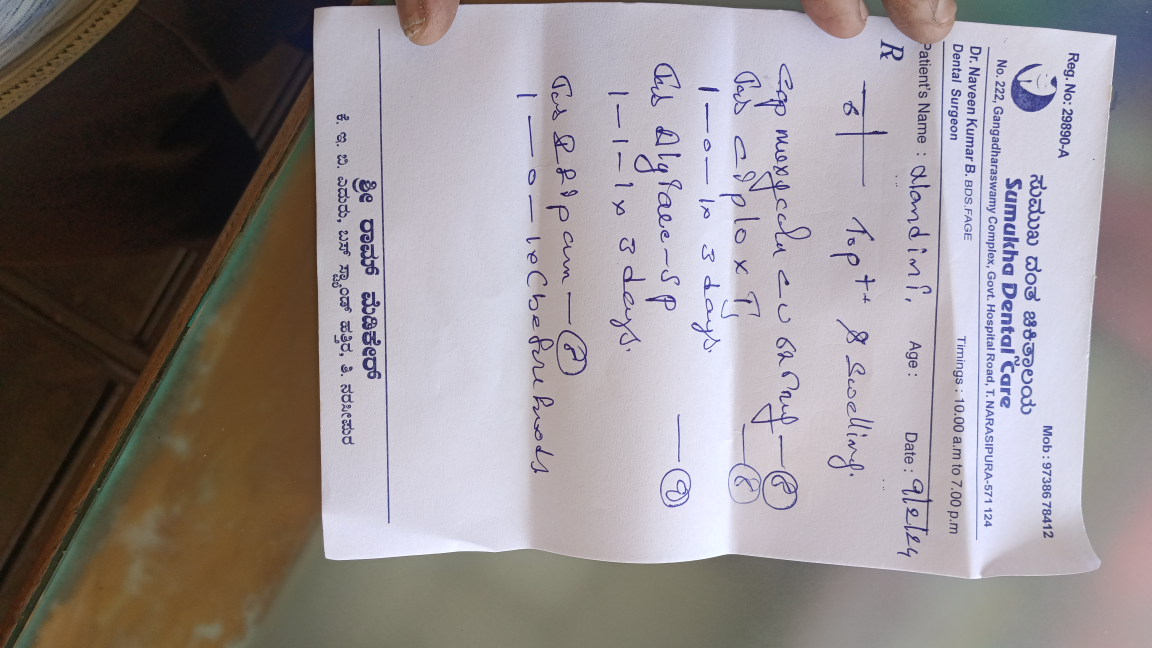 Reg. No: 29890-A
Mob : 97386 78412
ಸುಮುಖ ದಂತ ಚಿಕಿತ್ಸಾಲಯ
Sumukha Dental Care
No. 222, Gangadharaswamy Complex, Govt. Hospital Road, T. NARASIPURA-571 124
Dr. Naveen Kumar B. BDS.FAGE
Dental Surgeon
Timings : 10.00 a.m to 7.00 p.m
Patient's Name : Age : Date : 9/2/24
R
8 TOP++ & Swelling.
Cap 500 mg — 8
Tab Ciplox TZ — 8
1 — 0 — 1 x 3 days.
Tab — 9
1 — 1 — 1 x 3 days.
Tab — 8
1 — 0 — 1 before foods
ಶ್ರೀ ರಾಮ್ ಮೆಡಿಕೇರ್
ಕೆ. ಇ. ಬಿ. ಎದುರು, ಬಸ್ ಸ್ಟ್ಯಾಂಡ್ ಹತ್ತಿರ, ತಿ. ನರಸೀಪುರ